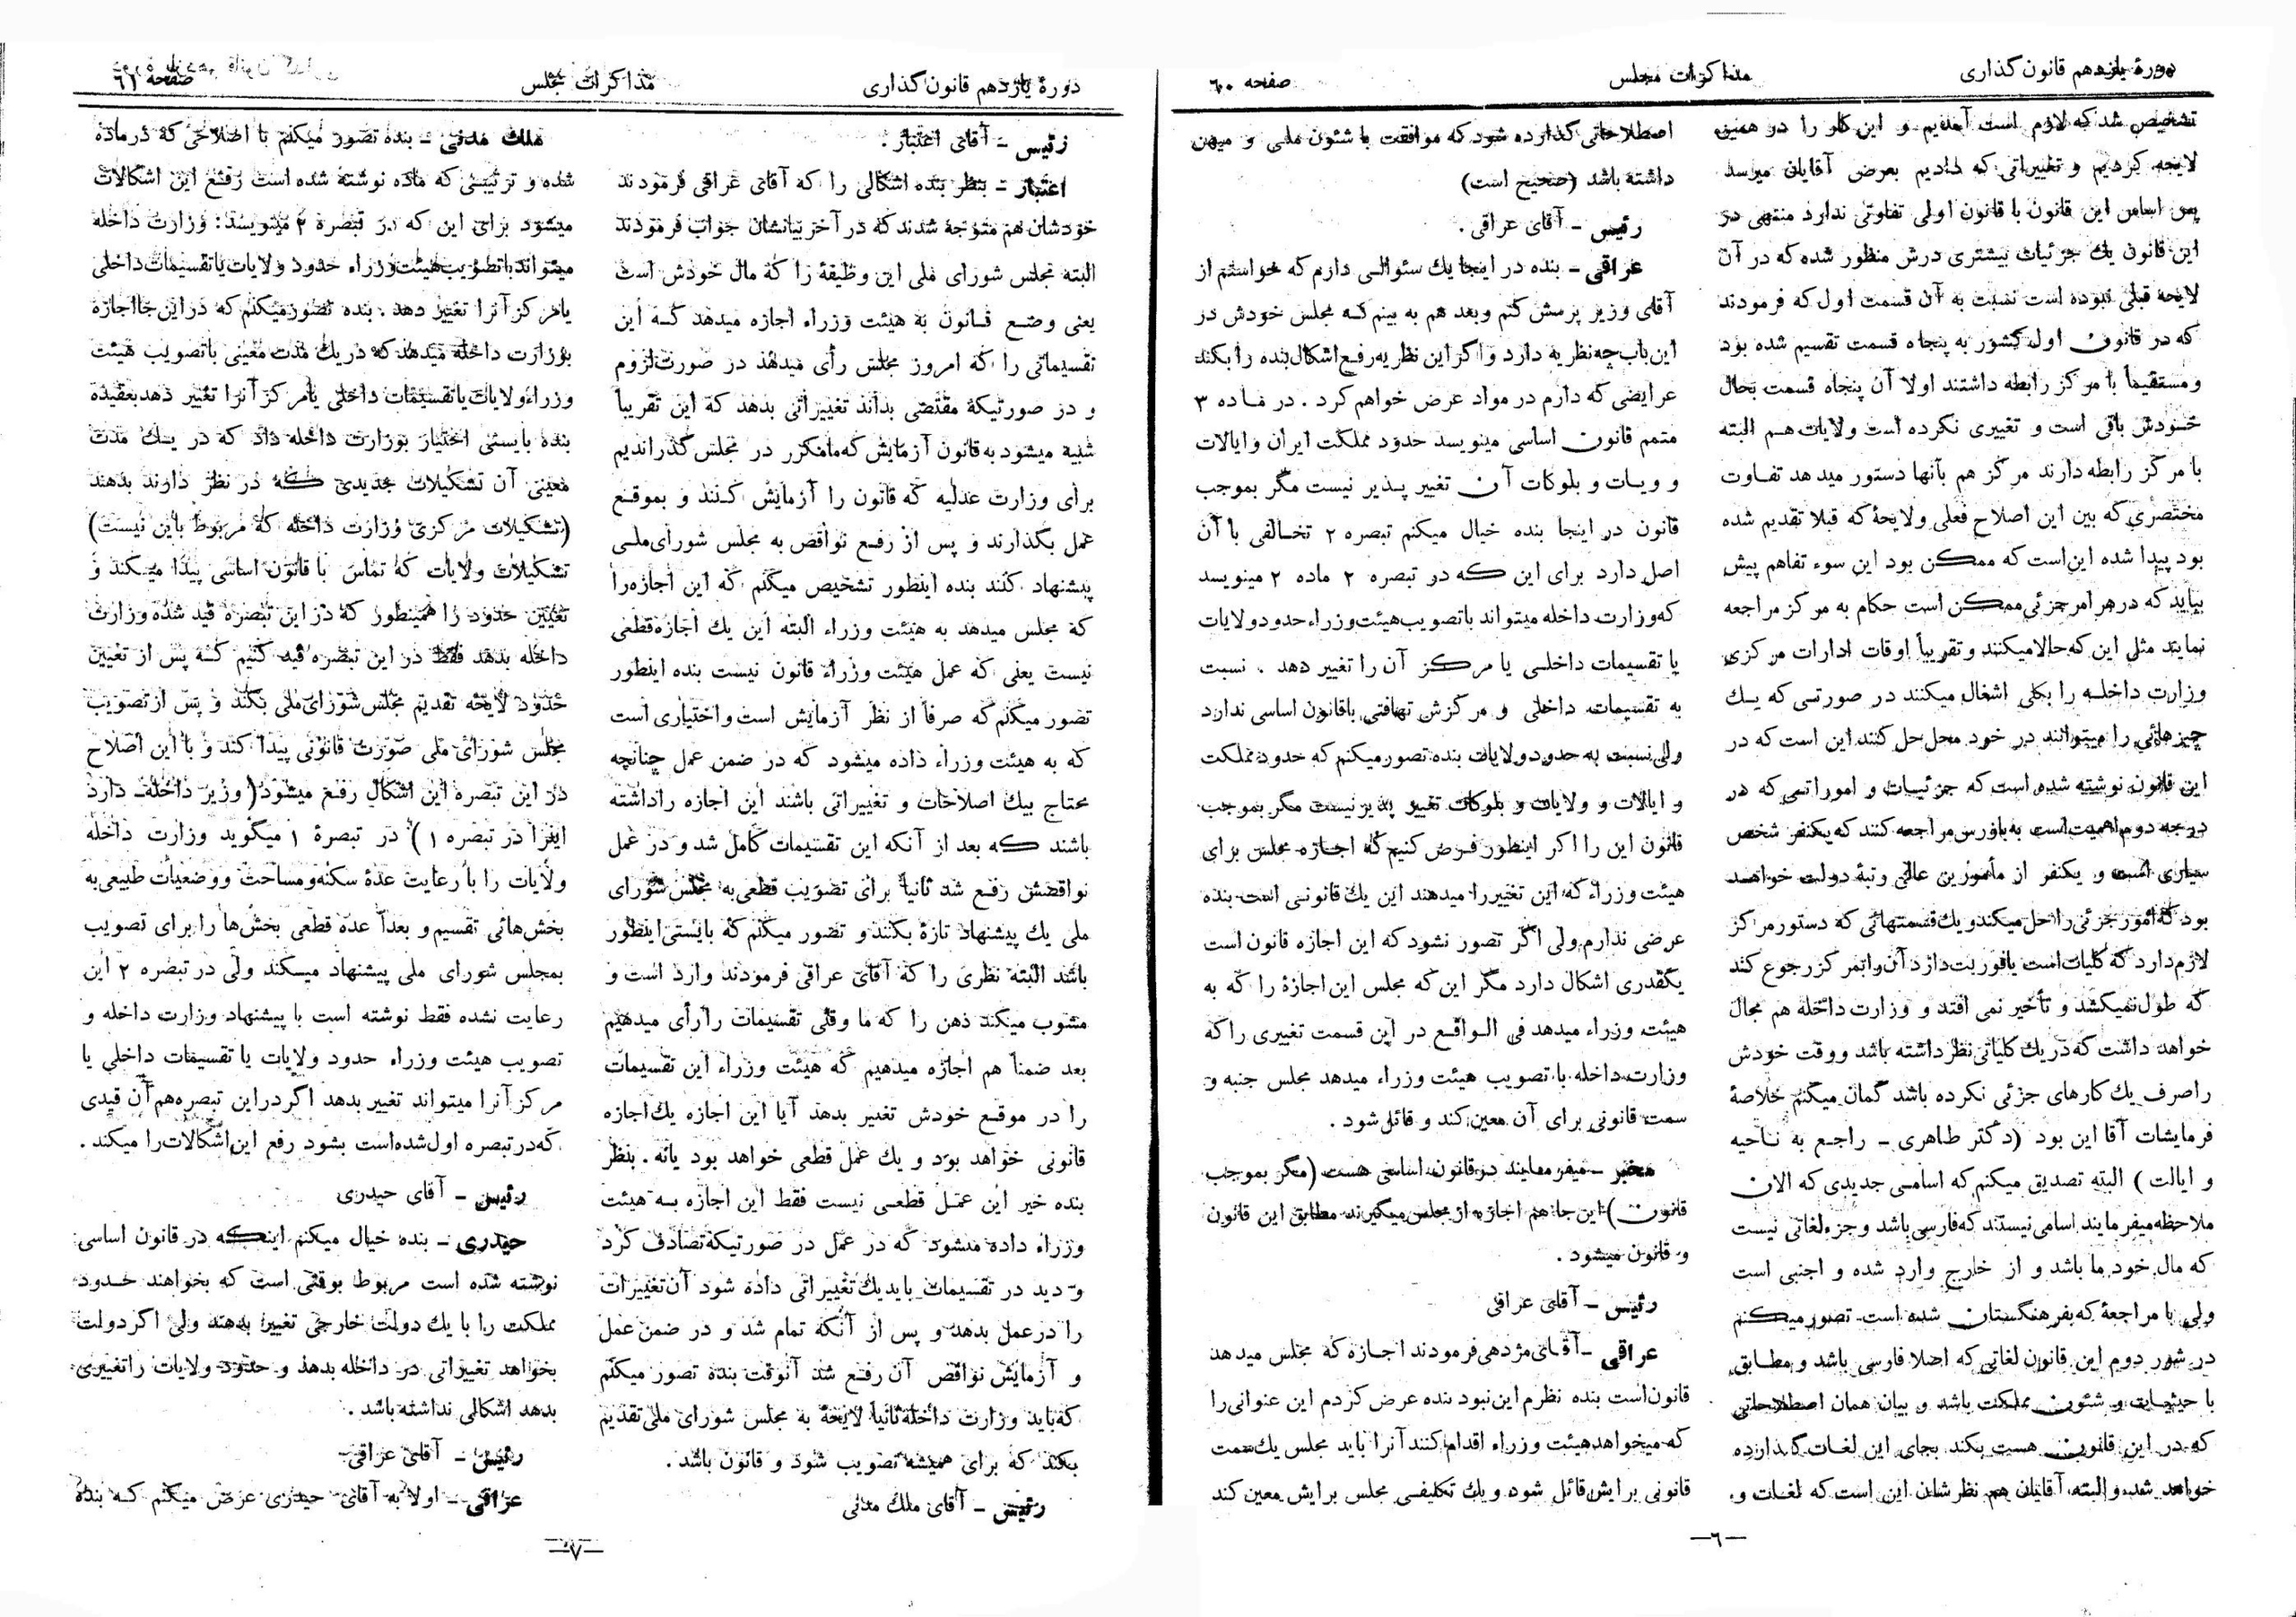 دورهٔ یازدهم قانون‌گذاری
مذاکرات مجلس
صفحه ۶۰
تشخیص شد که لازم است آمدیم و این کار را در همین
لایحه کردیم و تغییراتی که دادیم بعرض آقایان میرسد
پس اساس این قانون با قانون اولی تفاوتی ندارد منتهی در
این قانون یك جزئیات بیشتری درش منظور شده که در آن
لایحه قبلی نبوده است نسبت به آن قسمت اول که فرمودند
که در قانون اول کشور به پنجاه قسمت تقسیم شده بود
و مستقیماً با مرکز رابطه داشتند اولا آن پنجاه قسمت بحال
خودش باقی است و تغییری نکرده است ولایات هم البته
با مرکز رابطه دارند مرکز هم بآنها دستور میدهد تفاوت
مختصری که بین این اصلاح فعلی و لایحهٔ که قبلا تقدیم شده
بود پیدا شده این‌است که ممکن بود این سوء تفاهم پیش
بیاید که در هر امر جزئی ممکن است حکام به مرکز مراجعه
نمایند مثل این که حالا میکنند و تقریباً اوقات ادارات مرکزی
وزارت داخله را بکلی اشغال میکنند در صورتی که یك
چیزهائی را میتوانند در خود محل حل کنند این است که در
این قانون نوشته شده است که جزئیات و اموراتی که در
درجه دوم اهمیت است به بازرس مراجعه کنند که یکنفر شخص
سیاری است و یکنفر از مأمورین عالی رتبهٔ دولت خواهد
بود که امور جزئی را حل میکند و یك قسمتهائی که دستور مرکز
لازم دارد که کلیات است یا فوریت دارد آن را بمرکز رجوع کند
که طول نمیکشد و تأخیر نمی افتد و وزارت داخله هم مجال
خواهد داشت که در یك کلیاتی نظر داشته باشد و وقت خودش
را صرف یك کارهای جزئی نکرده باشد گمان میکنم خلاصهٔ
فرمایشات آقا این بود (دکتر طاهری ـ راجع به ناحیه
و ایالت) البته تصدیق میکنم که اسامی جدیدی که الان
ملاحظه میفرمایند اسامی نیستند که فارسی باشد و جزء لغاتی نیست
که مال خود ما باشد و از خارج وارد شده و اجنبی است
ولی با مراجعهٔ که بفرهنگستان شده است تصور میکنم
در شور دوم این قانون لغاتی که اصلا فارسی باشد و مطابق
با حیثیات و شئون مملکت باشد و بیان همان اصطلاحاتی
که در این قانون هست بکند بجای این لغات گذارده
خواهد شد و البته آقایان هم نظرشان این است که لغات و
اصطلاحاتی گذارده شود که موافقت با شئون ملی و میهن
داشته باشد (صحیح است)
رئیس ـ آقای عراقی .
عراقی ـ بنده در اینجا یك سئوالی دارم که خواستم از
آقای وزیر پرسش کنم و بعد هم به بینم که مجلس خودش در
این باب چه نظریه دارد و اگر این نظریه رفع اشکال بنده را بکند
عرایضی که دارم در مواد عرض خواهم کرد . در ماده ۳
متمم قانون اساسی مینویسد حدود مملکت ایران و ایالات
و ویات و بلوکات آن تغییر پذیر نیست مگر بموجب
قانون در اینجا بنده خیال میکنم تبصره ۲ تخالفی با آن
اصل دارد برای این که در تبصره ۲ ماده ۲ مینویسد
که وزارت داخله میتواند با تصویب هیئت وزراء حدود ولایات
یا تقسیمات داخلی یا مرکز آن را تغییر دهد . نسبت
به تقسیمات داخلی و مرکزش تهافتی با قانون اساسی ندارد
ولی نسبت به حدود ولایات بنده تصور میکنم که حدود مملکت
و ایالات و ولایات و بلوکات تغییر پذیر نیست مگر بموجب
قانون این را اگر اینطور فرض کنیم که اجازه مجلس برای
هیئت وزراء که این تغییر را میدهند این یك قانونی است بنده
عرضی ندارم ولی اگر تصور نشود که این اجازه قانون است
یکقدری اشکال دارد مگر این که مجلس این اجازهٔ را که به
هیئت وزراء میدهد فی الواقع در این قسمت تغییری را که
وزارت داخله با تصویب هیئت وزراء میدهد مجلس جنبه و
سمت قانونی برای آن معین کند و قائل شود .
مخبر ـ میفرمایند در قانون اساسی هست (مگر بموجب
قانون) این‌جا هم اجازه از مجلس میگیرند مطابق این قانون
و قانون میشود .
رئیس ـ آقای عراقی
عراقی ـ آقای مژدهی فرمودند اجازه که مجلس میدهد
قانون است بنده نظرم این نبود بنده عرض کردم این عنوانی را
که میخواهد هیئت وزراء اقدام کنند آنرا باید مجلس یك سمت
قانونی برایش قائل شود و یك تکلیفی مجلس برایش معین کند
ـ٦ـ
دورهٔ یازدهم قانون‌گذاری
مذاکرات مجلس
صفحه ۶۱
رئیس ـ آقای اعتبار .
اعتبار ـ بنظر بنده اشکالی را که آقای عراقی فرمودند
خودشان هم متوجه شدند که در آخر بیانشان جواب فرمودند
البته مجلس شورای ملی این وظیفهٔ را که مال خودش است
یعنی وضع قانون به هیئت وزراء اجازه میدهد که این
تقسیماتی را که امروز مجلس رأی میدهد در صورت لزوم
و در صورتیکهٔ مقتضی بداند تغییراتی بدهد که این تقریباً
شبیه میشود به قانون آزمایش که ما مکرر در مجلس گذراندیم
برای وزارت عدلیه که قانون را آزمایش کنند و بموقع
عمل بگذارند و پس از رفع نواقص به مجلس شورای ملی
پیشنهاد کنند بنده اینطور تشخیص میکنم که این اجازه را
که مجلس میدهد به هیئت وزراء البته این یك اجازه قطعی
نیست یعنی که عمل هیئت وزراء قانون نیست بنده اینطور
تصور میکنم که صرفاً از نظر آزمایش است و اختیاری است
که به هیئت وزراء داده میشود که در ضمن عمل چنانچه
محتاج بیك اصلاحات و تغییراتی باشند این اجازه را داشته
باشند که بعد از آنکه این تقسیمات کامل شد و در عمل
نواقصش رفع شد ثانیاً برای تصویب قطعی به مجلس شورای
ملی یك پیشنهاد تازهٔ بکنند و تصور میکنم که بایستی اینطور
باشد البته نظری را که آقای عراقی فرمودند وارد است و
مشوب میکند ذهن را که ما وقتی تقسیمات را رأی میدهیم
بعد ضمناً هم اجازه میدهیم که هیئت وزراء این تقسیمات
را در موقع خودش تغییر بدهد آیا این اجازه یك اجازه
قانونی خواهد بود و یك عمل قطعی خواهد بود یا نه . بنظر
بنده خیر این عمل قطعی نیست فقط این اجازه به هیئت
وزراء داده میشود که در عمل در صورتیکه تصادف کرد
و دید در تقسیمات باید یك تغییراتی داده شود آن تغییرات
را در عمل بدهد و پس از آنکه تمام شد و در ضمن عمل
و آزمایش نواقص آن رفع شد آنوقت بنده تصور میکنم
که باید وزارت داخله ثانیاً لایحهٔ به مجلس شورای ملی تقدیم
بکند که برای همیشه تصویب شود و قانون باشد .
رئیس ـ آقای ملك مدنی
ملك مدنی ـ بنده تصور میکنم با اصلاحی که در ماده
شده و ترتیبی که ماده نوشته شده است رفع این اشکالات
میشود برای این که در تبصره ۲ مینویسد: وزارت داخله
میتواند با تصویب هیئت وزراء حدود ولایات یا تقسیمات داخلی
یا مرکز آنرا تغییر دهد . بنده تصور میکنم که در این جا اجازه
بوزارت داخله میدهد که در یك مدت معینی با تصویب هیئت
وزراء ولایات یا تقسیمات داخلی یا مرکز آنرا تغییر دهد بعقیده
بنده بایستی اختیار بوزارت داخله داد که در یك مدت
معینی آن تشکیلات جدیدی که در نظر دارند بدهند
(تشکیلات مرکزی وزارت داخله که مربوط باین نیست)
تشکیلات ولایات که تماس با قانون اساسی پیدا میکند و
تعیین حدود را همینطور که در این تبصره قید شده وزارت
داخله بدهد فقط در این تبصره قید کنیم که پس از تعیین
حدود لایحه تقدیم مجلس شورای ملی بکند و پس از تصویب
مجلس شورای ملی صورت قانونی پیدا کند و با این اصلاح
در این تبصره این اشکال رفع میشود (وزیر داخله ـ دارد
اینرا در تبصره ۱) در تبصرهٔ ۱ میگوید وزارت داخله
ولایات را با رعایت عدهٔ سکنه و مساحت و وضعیات طبیعی به
بخش‌هائی تقسیم و بعداً عدهٔ قطعی بخش‌ها را برای تصویب
بمجلس شورای ملی پیشنهاد میکند ولی در تبصره ۲ این
رعایت نشده فقط نوشته است با پیشنهاد وزارت داخله و
تصویب هیئت وزراء حدود ولایات یا تقسیمات داخلی یا
مرکز آنرا میتواند تغییر بدهد اگر در این تبصره هم آن قیدی
که در تبصره اول شده‌است بشود رفع این اشکالات را میکند .
رئیس ـ آقای حیدری
حیدری ـ بنده خیال میکنم اینکه در قانون اساسی
نوشته شده است مربوط بوقتی است که بخواهند حدود
مملکت را با یك دولت خارجی تغییر بدهند ولی اگر دولت
بخواهد تغییراتی در داخله بدهد و حدود ولایات را تغییری
بدهد اشکالی نداشته باشد .
رئیس ـ آقای عراقی
عراقی ـ اولا به آقای حیدری عرض میکنم که بنده
ـ۷ـ